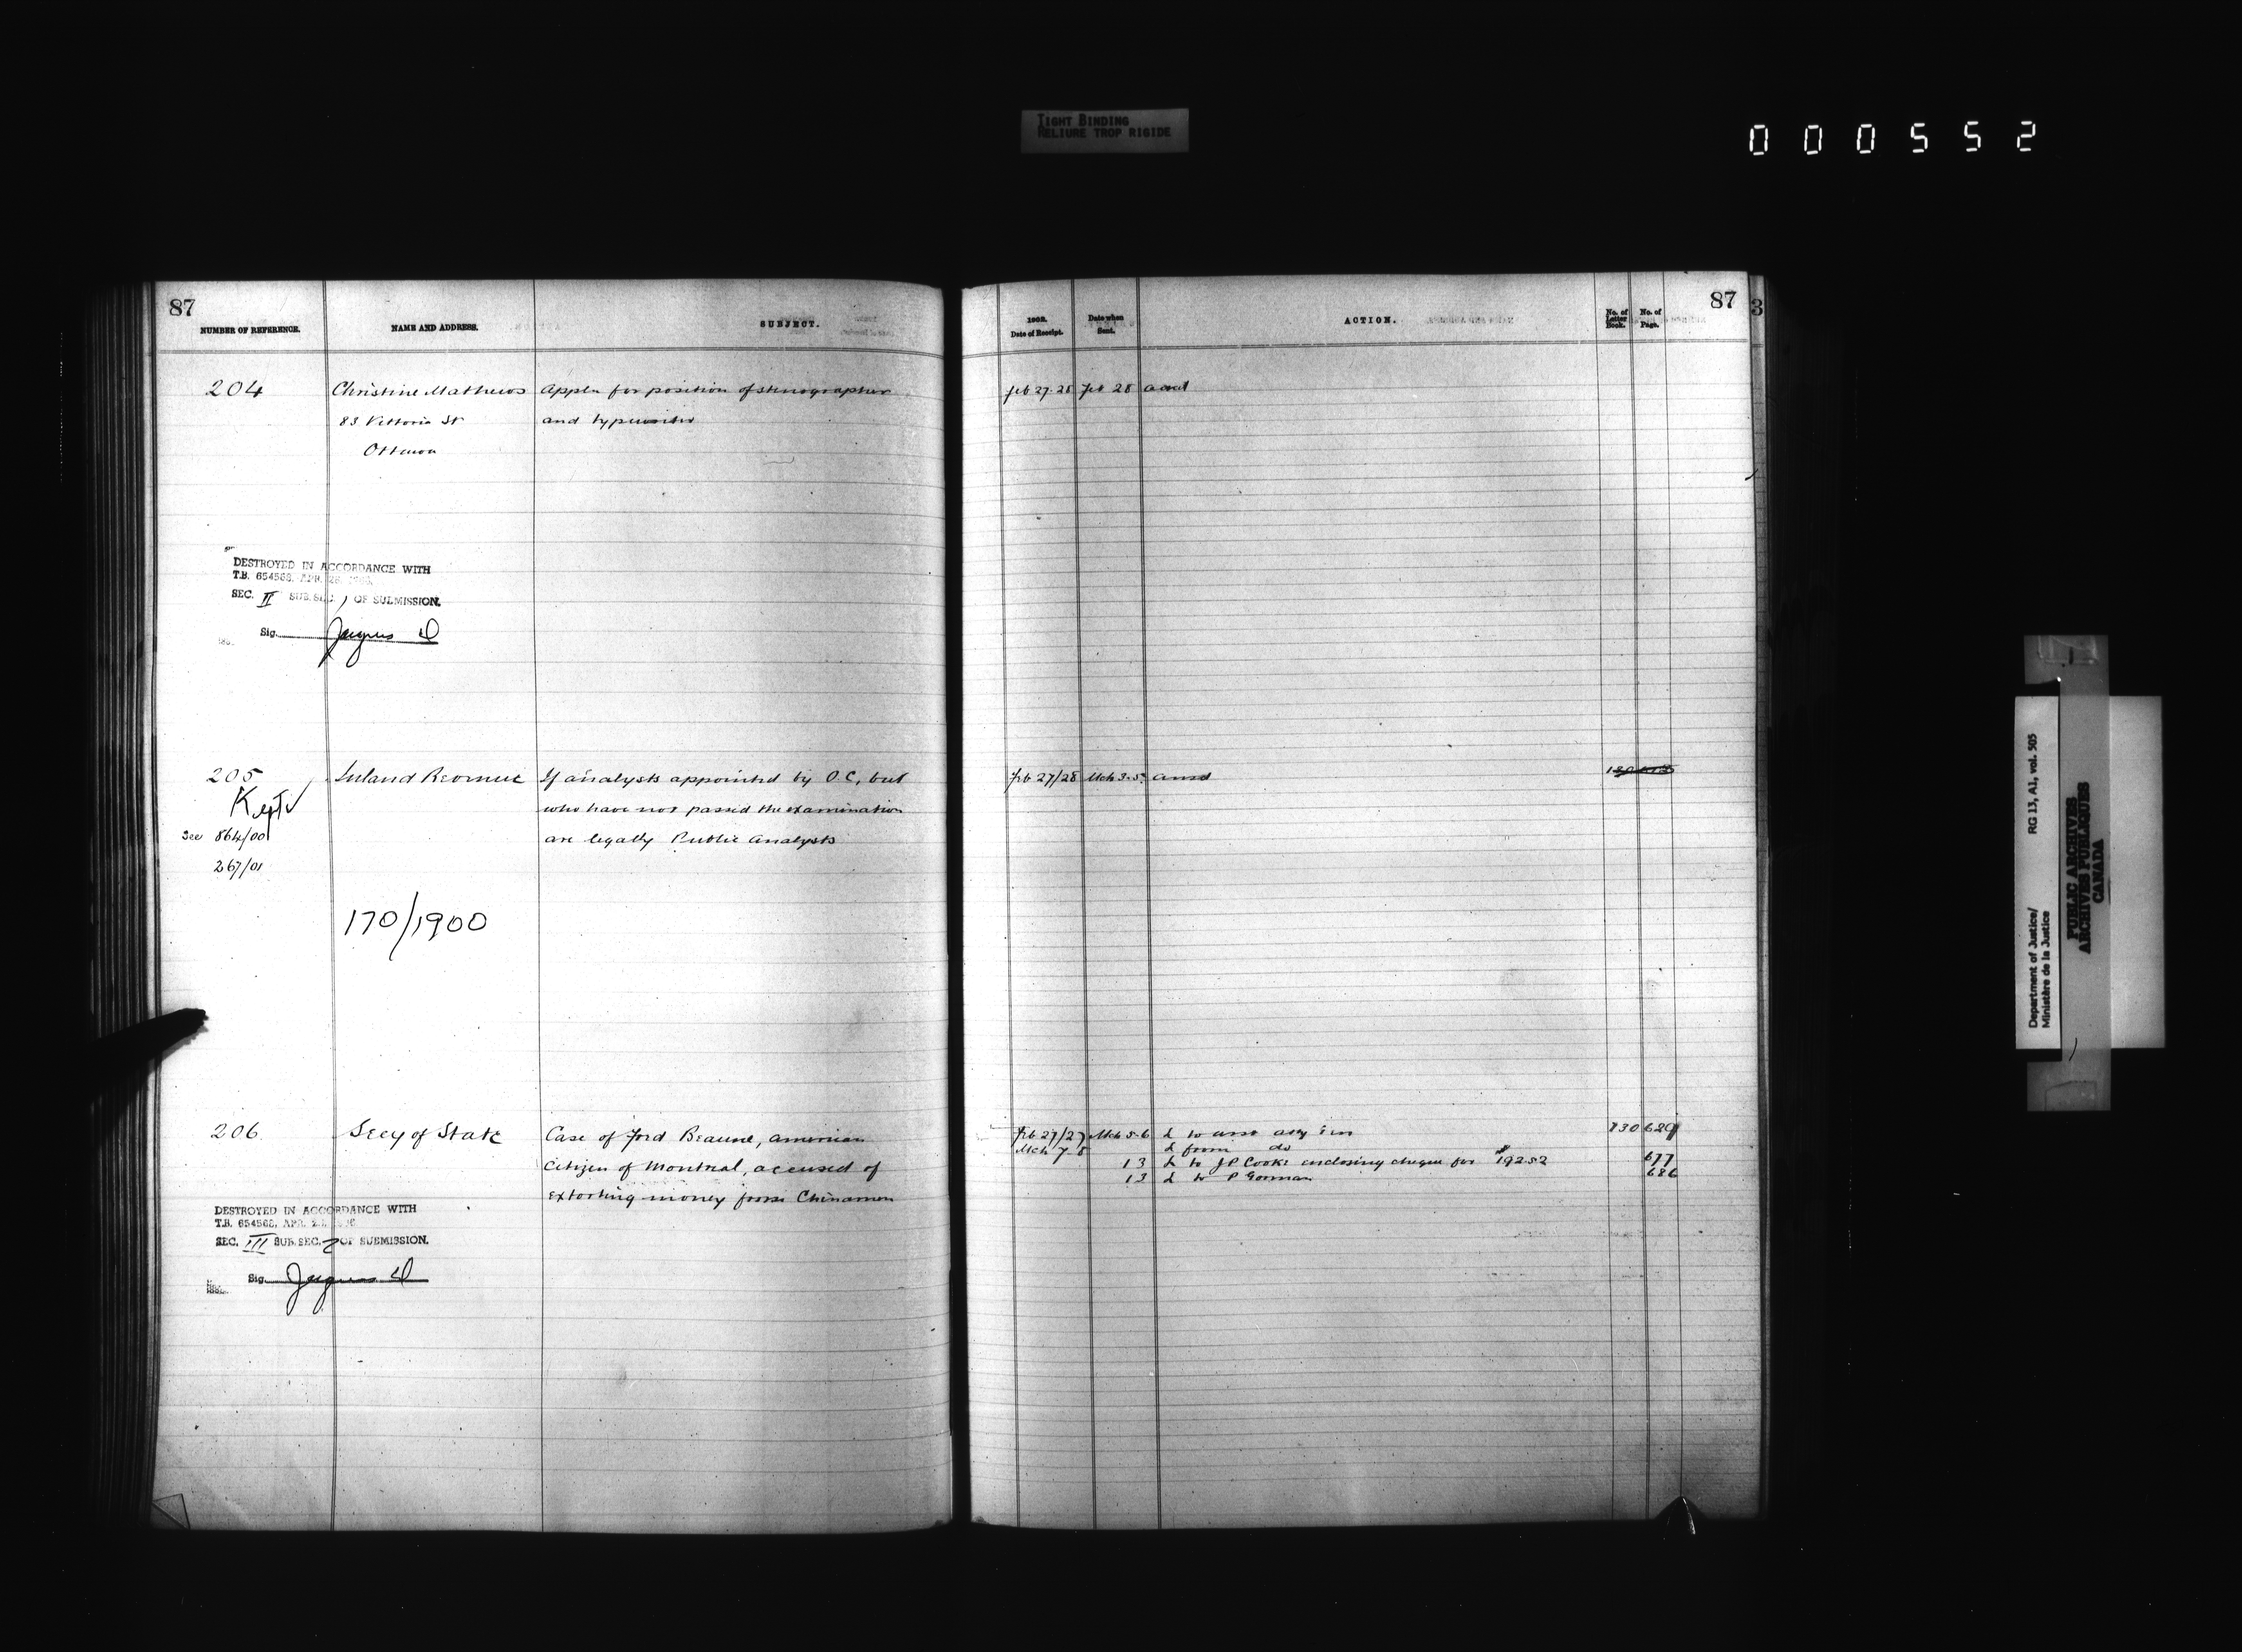 TIGHT BINDING
RELIURE TROP RIGIDE
000552
87
NUMBER OF REFERENCE.
NAME AND ADDRESS.
SUBJECT.
204
Christine Mathews
Appln for position of stenographer
83 Vittoria St
and typewriter
Ottawa
DESTROYED IN ACCORDANCE WITH
T.B. 654568, APR. 26,
SEC. II SUB.SEC. 1 OF SUBMISSION.
Sig. Jacques D
205
Inland Revenue
If analysts appointed by O.C, but
Kept
who have not passed the examination
See 864/00
are legally Public Analysts
267/01
170/1900
206
Secy of State
Case of Ford Beaune, American
Citizen of Montreal, accused of
extorting money from Chinamen
DESTROYED IN ACCORDANCE WITH
T.B. 654568, APR.
SEC. III SUB.SEC. 2 OF SUBMISSION.
Sig. Jacques D
87
1902.
Date of Receipt.
Date when
Sent.
ACTION.
No. of
Letter
Book.
No. of
Page.
3
Feb 27-28 Feb 28 acad
Feb 27/28 Mch 3-5 ansd
Feb 27/27 Mch 5-6 L to asst atty Gen 130 629
Mch 7-8 L from do
13 L to JP Cooke enclosing cheque for $192.52 677
13 L to P Gorman 686
Department of Justice/
Ministère de la Justice
RG 13, A1, vol. 505
PUBLIC ARCHIVES
ARCHIVES PUBLIQUES
CANADA